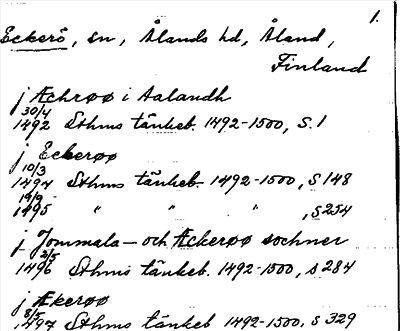 1.
Eckerö, sn, Ålands hd, Åland,
Finland
j Æchrøø i Aalandh
30/4
1492 Sthms tänkeb. 1492-1500, S. 1
j Eckerøø
10/3
1494 Sthms tänkeb. 1492-1500, S 148
19/9
1495 " " " , S 254
j Jommala- och Æckerøø sochner
2/5
1496 Sthms tänkeb. 1492-1500, s 284
j Ækerøø
8/5
1497 Sthms tänkeb 1492-1500. s 329